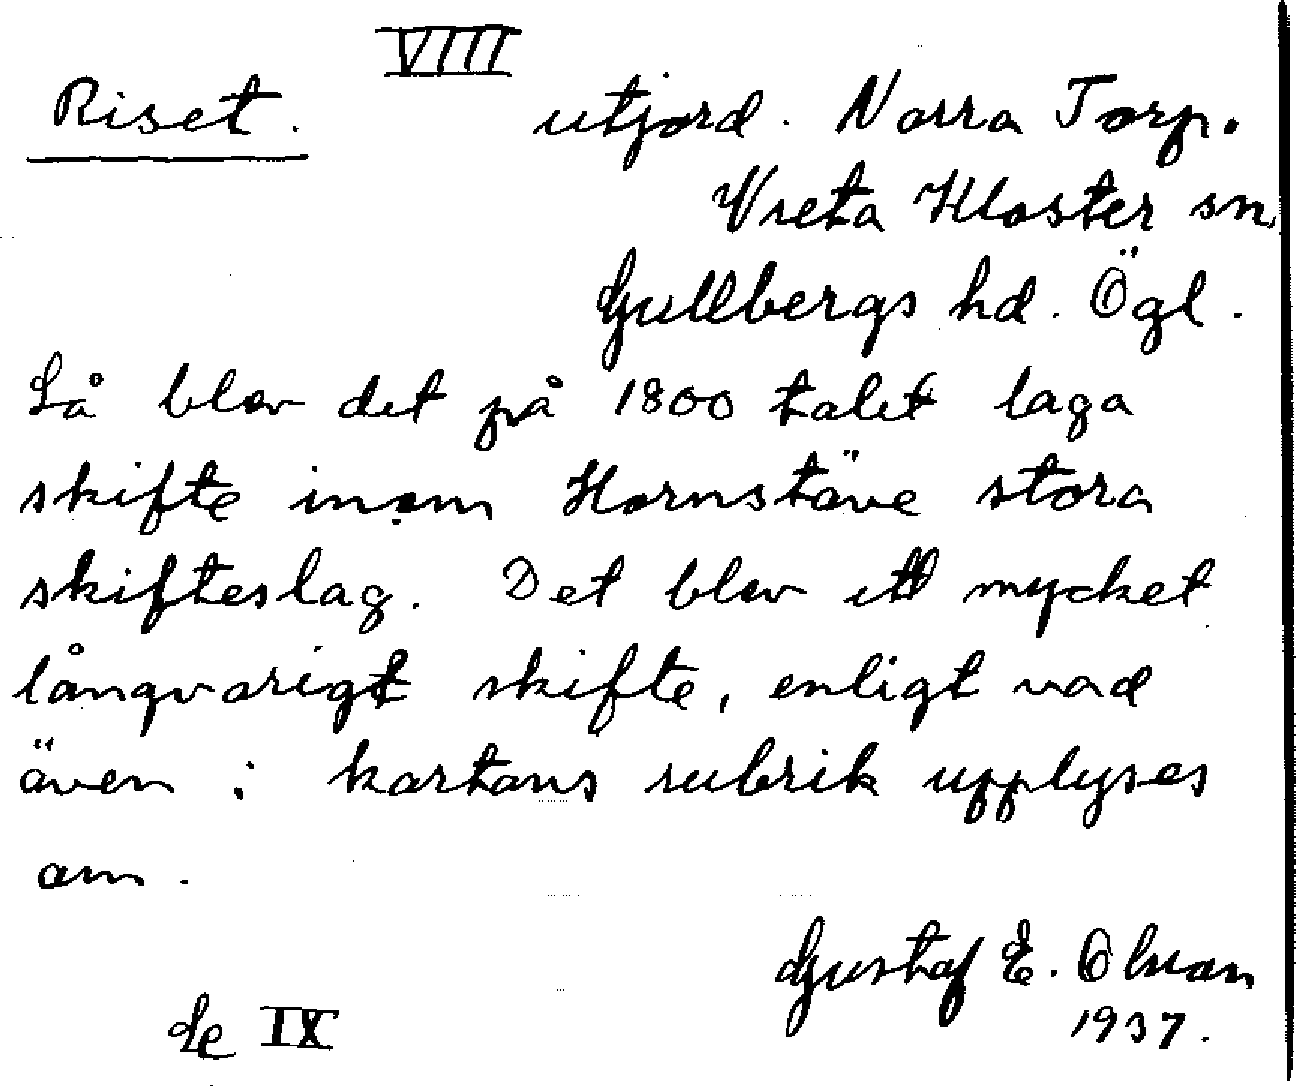 VIII
Riset. utjord. Norra Torp.
Vreta Kloster sn
Gullbergs hd. Ögl.
Så blev det på 1800 talet laga
skifte inom Hornstäve stora
skifteslag. Det blev ett mycket
långvarigt skifte, enligt vad
även i kartans rubrik upplyses
om.
Gustaf E. Olsson
1937.
Se IX